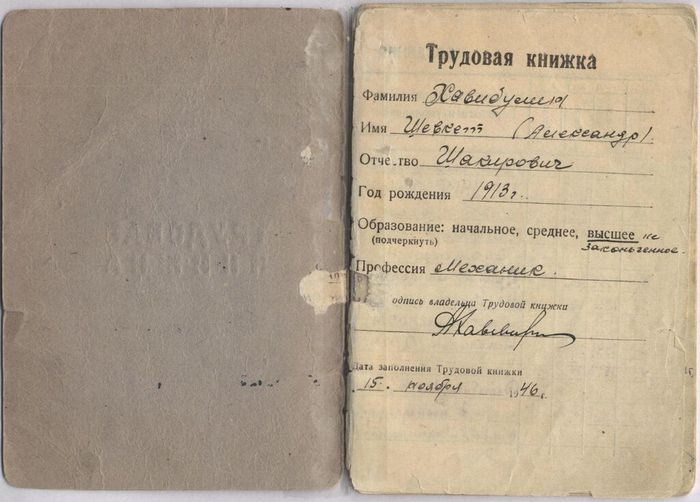 Трудовая книжка
Фамилия Хавибулин
Имя Шевкет (Александр).
Отчество Шакирович
Год рождения 1913 г.
Образование: начальное, среднее, высшее не
(подчеркнуть) законченное.
Профессия Механик.
одпись владельца Трудовой книжки
Дата заполнения Трудовой книжки
15. ноября 1946 г.